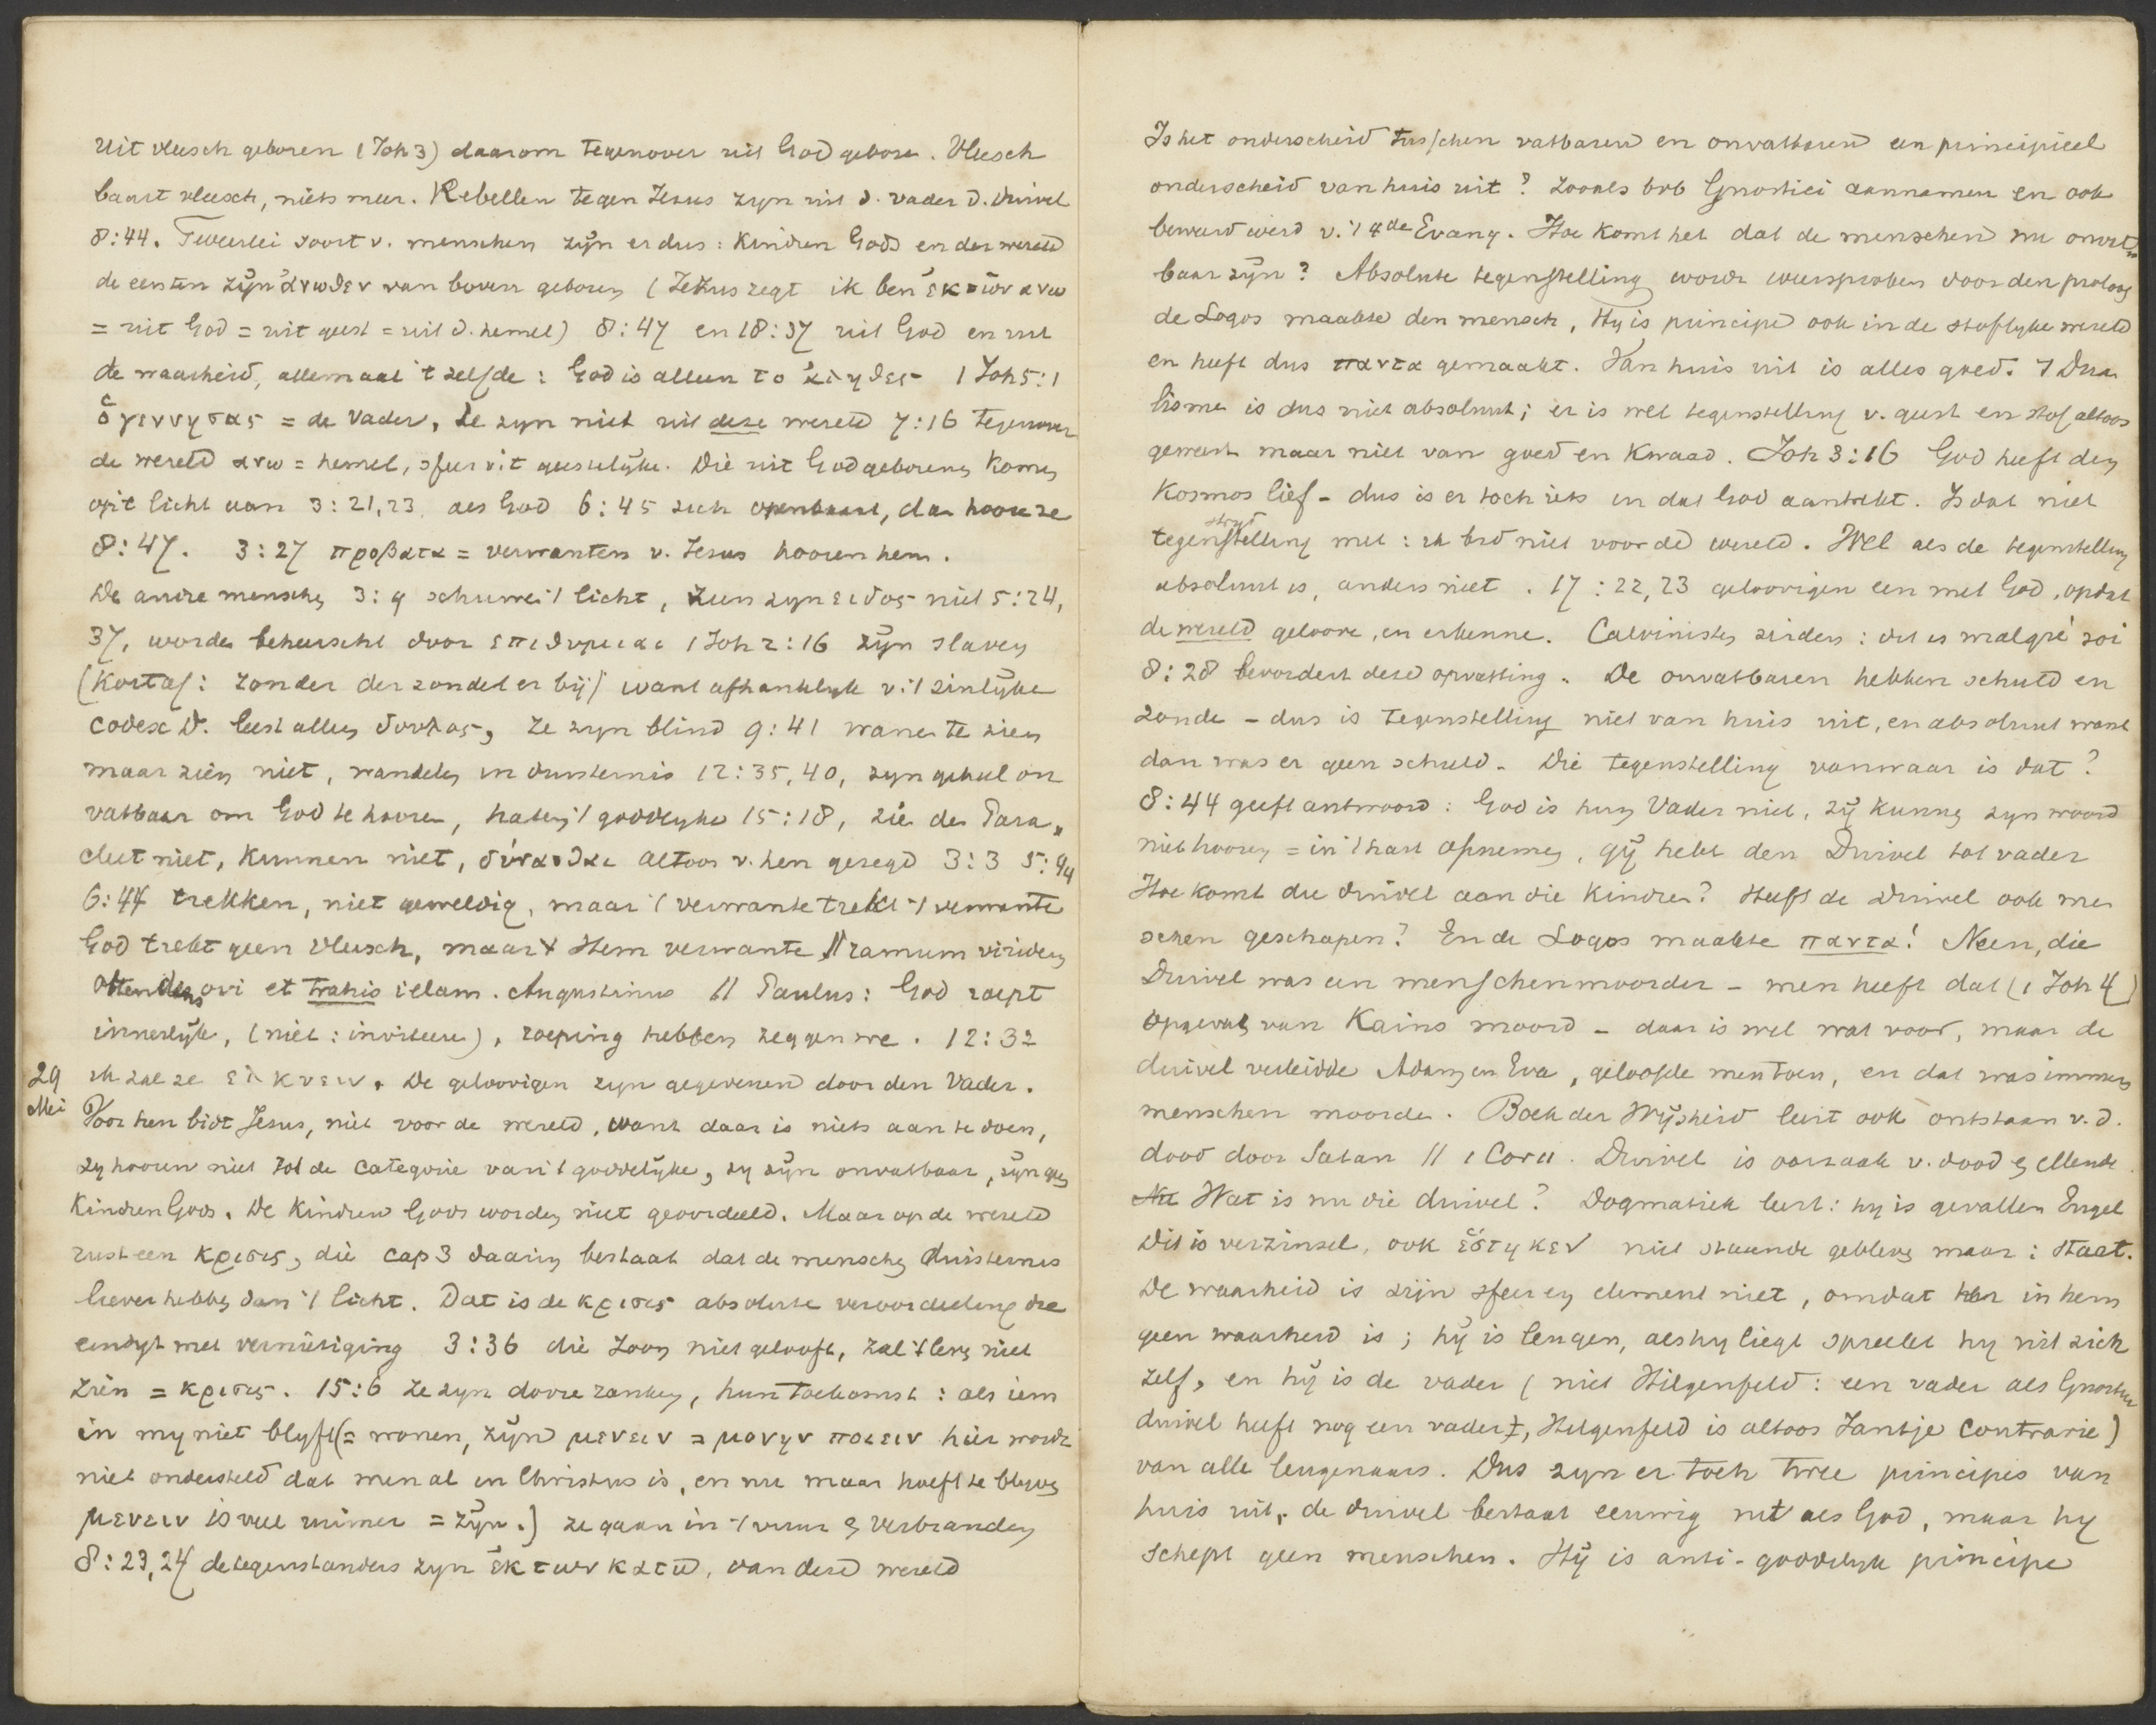 Uit vleesch geboren (Joh 3) daarom tegenover uit God geboren. Vleesch
baart vleesch, niets meer. Rebellen tegen Jezus zyn uit d. vader d. Duivel
8:44. Tweeërlei soort v. menschen zijn er dus: Kindren Gods en der wereld
de eersten zijn ἀνωθεν van boven geboren (Jezus zegt ik ben ἐκ των ανω
= uit God = uit geest = uit d. hemel) 8:47 en 18:37 uit God en uit
de waarheid, allemaal 't zelfde: God is alleen το ἀληθες 1 Joh 5:1
ὁ γεννησας = de Vader, Ze zyn niet uit deze wereld 7:16 tegenover
de wereld ανω = hemel, sfeer v. 't geestelijke. Die uit God geboren komen
op 't licht aan 3:21,23. als God 6:45 zich openbaart, dan hooren ze
8:47. 3:27 προβατα = verwanten v. Jezus hooren hem.
De andre menschen 3:9 schuwen 't licht, zien zyn ειδος niet 5:24,
37, worden beheerscht door επιθυμιαι 1 Joh 2:16 zijn slaven
(Kortaf: zonder der zonde er bij) want afhanklyk v. 't zinlijke
codex D. leest alleen δουλος, ze zyn blind 9:41 wanen te zien
maar zien niet, wandelen in duisternis 12:35, 40, zyn geheel on
vatbaar om God te hooren, haten 't goddelyke 15:18, zien den Para„
cleet niet, kunnen niet, δύνασθαι altoos v. hen gezegd 3:3 5:44
6:44 trekken, niet geweldig, maar 't verwante trekt 't verwante
God trekt geen vleesch, maar 't Hem verwante // ramum viridem
ostendens ovi et trahis illam. Augustinus // Paulus: God roept
innerlijk, (niet: inviteere), roeping hebben zeggen we. 12:32
29 Mei ik zal ze ελκυειν. De geloovigen zyn gegevenen door den Vader.
Voor hen bidt Jesus, niet voor de wereld, want daar is niets aan te doen,
zy hooren niet tot de categorie van 't goddelijke, zy zijn onvatbaar, zijn geen
Kindren Gods. De Kindren Gods worden niet geoordeeld. Maar op de wereld
rust een κρισις, die cap 3 daarin bestaat dat de menschen duisternis
liever hebben dan 't licht. Dat is de κρισις absolute veroordeeling die
eindigt met vernietiging 3:36 die Zoon niet gelooft, zal 't leven niet
zien = κρισις. 15:6 ze zyn dorre ranken, hun toekomst: als iem
in my niet blyft (= wonen, zijn μενειν = μονην ποιειν hier wordt
niet ondersteld dat men al in Christus is, en nu maar hoeft te blyven
μενειν is veel ruimer = zijn.) ze gaan in 't vuur & verbranden
8:23,24 de tegenstanders zyn ἐκ των κατω, van deze wereld
Is het onderscheid tusschen vatbaren en onvatbaren een principieel
onderscheid van huis uit? zooals bvb Gnostici aannamen en ook
beweerd werd v. 't 4de Evang. Hoe komt het dat de menschen nu onvat„
baar zijn? Absolute tegenstelling wordt weersproken door den proloog
de Logos maakte den mensch, Hy is principe ook in de stoflyke wereld
en heeft dus παντα gemaakt. Van huis uit is alles goed. 't Dua
lisme is dus niet absoluut; er is wel tegenstelling v. geest en stof altoos
geweest maar niet van goed en kwaad. Joh 3:16 God heeft den
Kosmos lief - dus is er toch iets in dat God aantrekt. Is dat niet
strijd
tegenstelling met: ik bid niet voor de wereld. Wel als de tegenstelling
absoluut is, anders niet. 17:22,23 geloovigen een met God, opdat
de wereld geloove, en erkenne. Calvinisten zeiden: dit is malgré soi
8:28 bevordert deze opvatting. De onvatbaren hebben schuld en
zonde - dus is tegenstelling niet van huis uit, en absoluut want
dan was er geen schuld. Die tegenstelling vanwaar is dat?
8:44 geeft antwoord: God is hun Vader niet, zij kunnen zyn woord
niet hooren = in 't hart opnemen, gij hebt den Duivel tot vader
Hoe komt die duivel aan die Kindren? Heeft de duivel ook men
schen geschapen? En de Logos maakte παντα! Neen, die
Duivel was een menschenmoorder - men heeft dat (1 Joh 4)
opgevat van Kains moord - daar is wel wat voor, maar de
duivel verleidde Adam en Eva, geloofde men toen, en dat was immers
menschen moorder. Boek der Wijsheid leert ook ontstaan v. d.
dood door Satan // 1 Cor 11. Duivel is oorzaak v. dood & ellende.
Nu Wat is nu die duivel? Dogmatiek leert: hy is gevallen Engel
Dit is verzinsel, ook ἕστηκεν niet staande gebleven maar: staat.
De waarheid is zijn sfeer en element niet, omdat her in hem
geen waarheid is; hij is leugen, als hy liegt spreekt hy uit zich
zelf, en hij is de vader (niet Hilgenfeld: een vader als Gnostici
duivel heeft nog een vader, Hilgenfeld is altoos Jantje Contrarie)
van alle leugenaars. Dus zyn er toch twee principes van
huis uit, de duivel bestaat eeuwig net als God, maar hy
schept geen menschen. Hij is anti-goddelyk principe